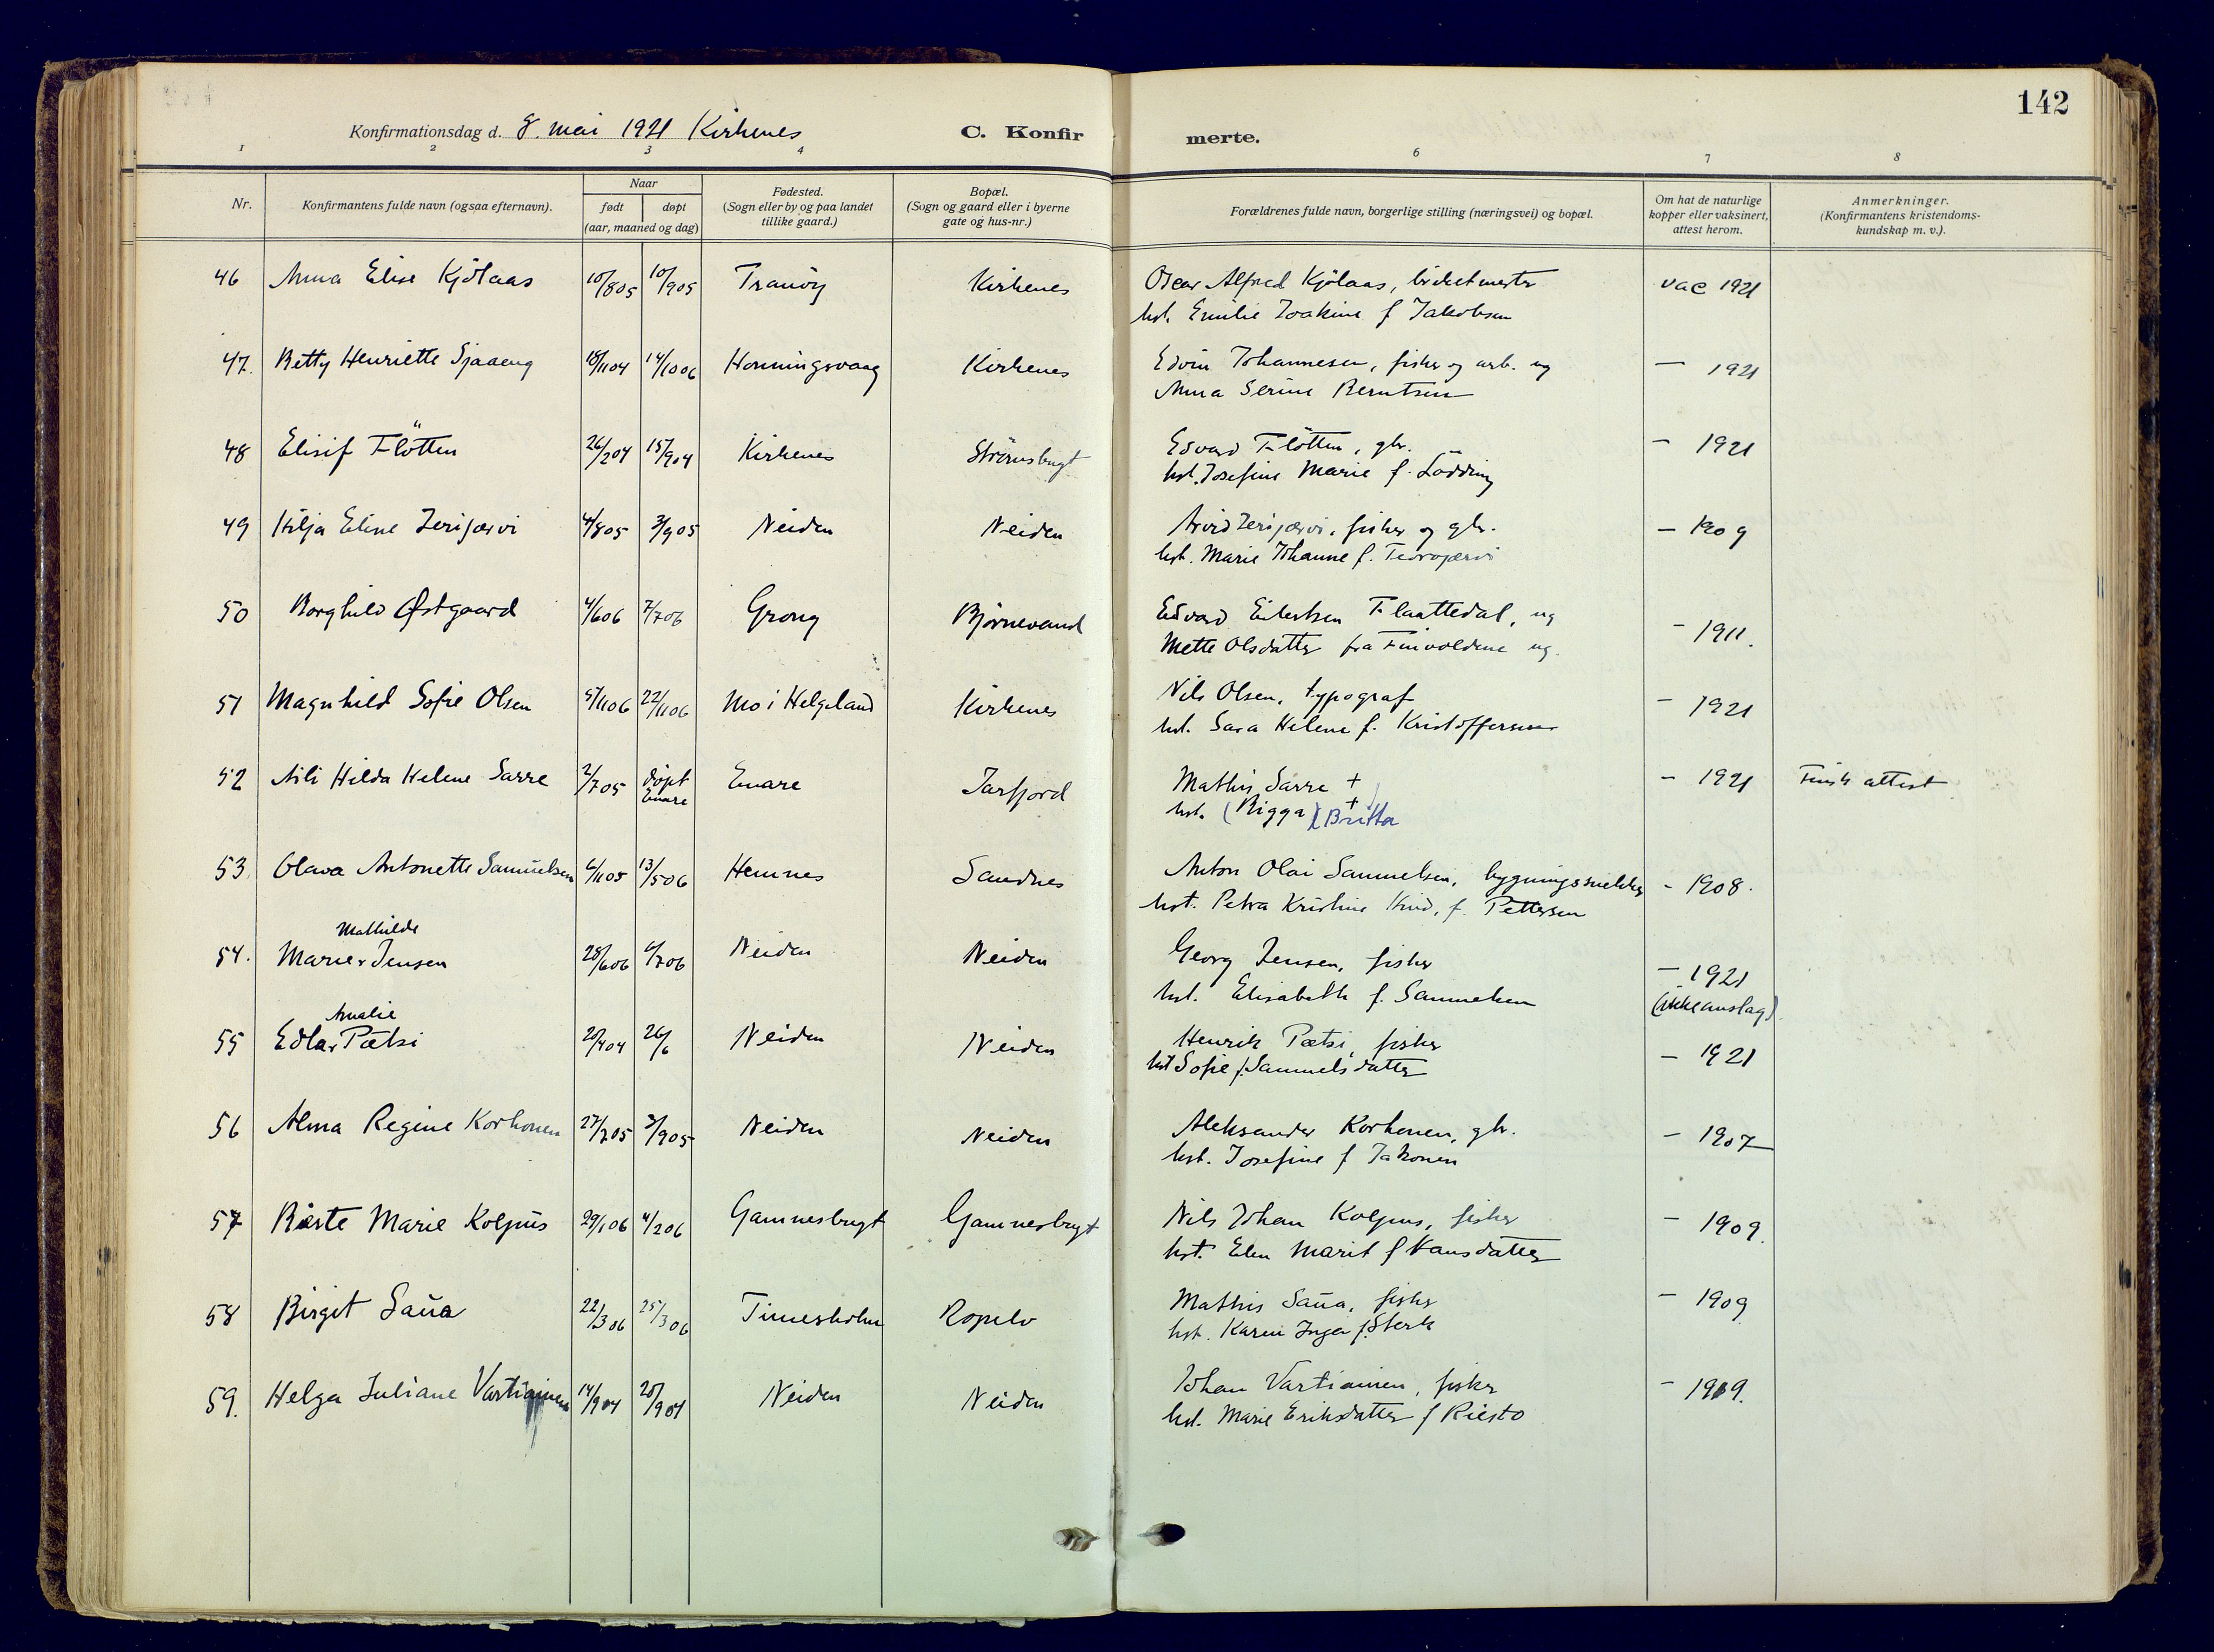 142
Konfirmationsdag d. 8. mai 1921 Kirkenes C. Konfir merte.
1 2 3 4 6 7 8
Nr. Konfirmantens fulde navn (ogsaa efternavn). Naar født døpt (aar, maaned og dag) Fødested. (Sogn eller by og paa landet tillike gaard.) Bopæl. (Sogn og gaard eller i byerne gate og hus-nr.) Forældrenes fulde navn, borgerlige stilling (næringsvei) og bopæl. Om hat de naturlige kopper eller vaksinert, attest herom. Anmerkninger. (Konfirmantens kristendoms-kundskap m. v.).
46 Anna Elise Kjölaas 10/805 10/905 Tranöy Kirkenes Oscar Alfred Kjölaas, briketmester vac 1921
hst. Emilie Joakine f Jakobsen
47. Betty Henriette Sjaaeng 18/1104 14/1006 Honningsvaag Kirkenes Edvin Johannesen, fisker og arb. ug — 1921
Anna Serine Berntsen
48 Elisif Flötten 26/204 15/904 Kirkenes Strömsbugt Edvard Flötten, gbr. — 1921
hst. Josefine Marie f. Lödding
49 Hilja Eline Jerijærvi 4/805 3/905 Neiden Neiden Arvid Jerijærvi, fisker og gbr. — 1909
hst. Marie Johanne f.
50 Borghild Østgaard 4/606 7/706 Grong Bjørnevand Edvard Eilertsen Flaattedal, ug — 1911.
Mette Olsdatter fra Finvoldene ug.
51 Magnhild Sofie Olsen 5/1106 22/1106 Mo i Helgeland Kirkenes Nils Olsen, typograf — 1921
hst. Sara Helene f. Kristoffersen
52 Aili Hilda Helene Sarre 2/705 döpt Enare Enare Jarfjord Mathis Sarre + — 1921 Finsk attest
hst. (Bigga) + Britta
53. Olava Antonette Samuelsen 6/1105 13/506 Hemnes Sandnes Anton Olai Samuelsen, bygningssnekker — 1908.
hst. Petra Kristine Kind, f. Pettersen
Mathilde
54. Marie v Jensen 28/606 6/706 Neiden Neiden Georg Jensen, fisker — 1921
hst. Elisabeth f. Samuelsen (ikke anslag)
Amalie
55 Edla v Pætsi 20/404 26/6 Neiden Neiden Henrik Pætsi, fisker — 1921
hst Sofie f. Samuelsdatter
56 Alma Regine Korhonen 27/705 3/905 Neiden Neiden Aleksander Korhonen, gbr. — 1907
hst. Josefine f Jakonen
57 Birste Marie Kolpus 29/106 4/206 Gamnesbugt Gamnesbugt Nils Johan Kolpus, fisker — 1909.
hst. Elen Marit f Hansdatter
58 Birget Saua 22/306 25/306 Timesholm Ropelv Mathis Saua, fisker — 1909
hst. Karen Inga f. Sterk
59. Helga Juliane Vartiainen 14/904 25/904 Neiden Neiden Johan Vartiainen, fisker — 1919.
hst. Marie Eriksdatter f Riesto